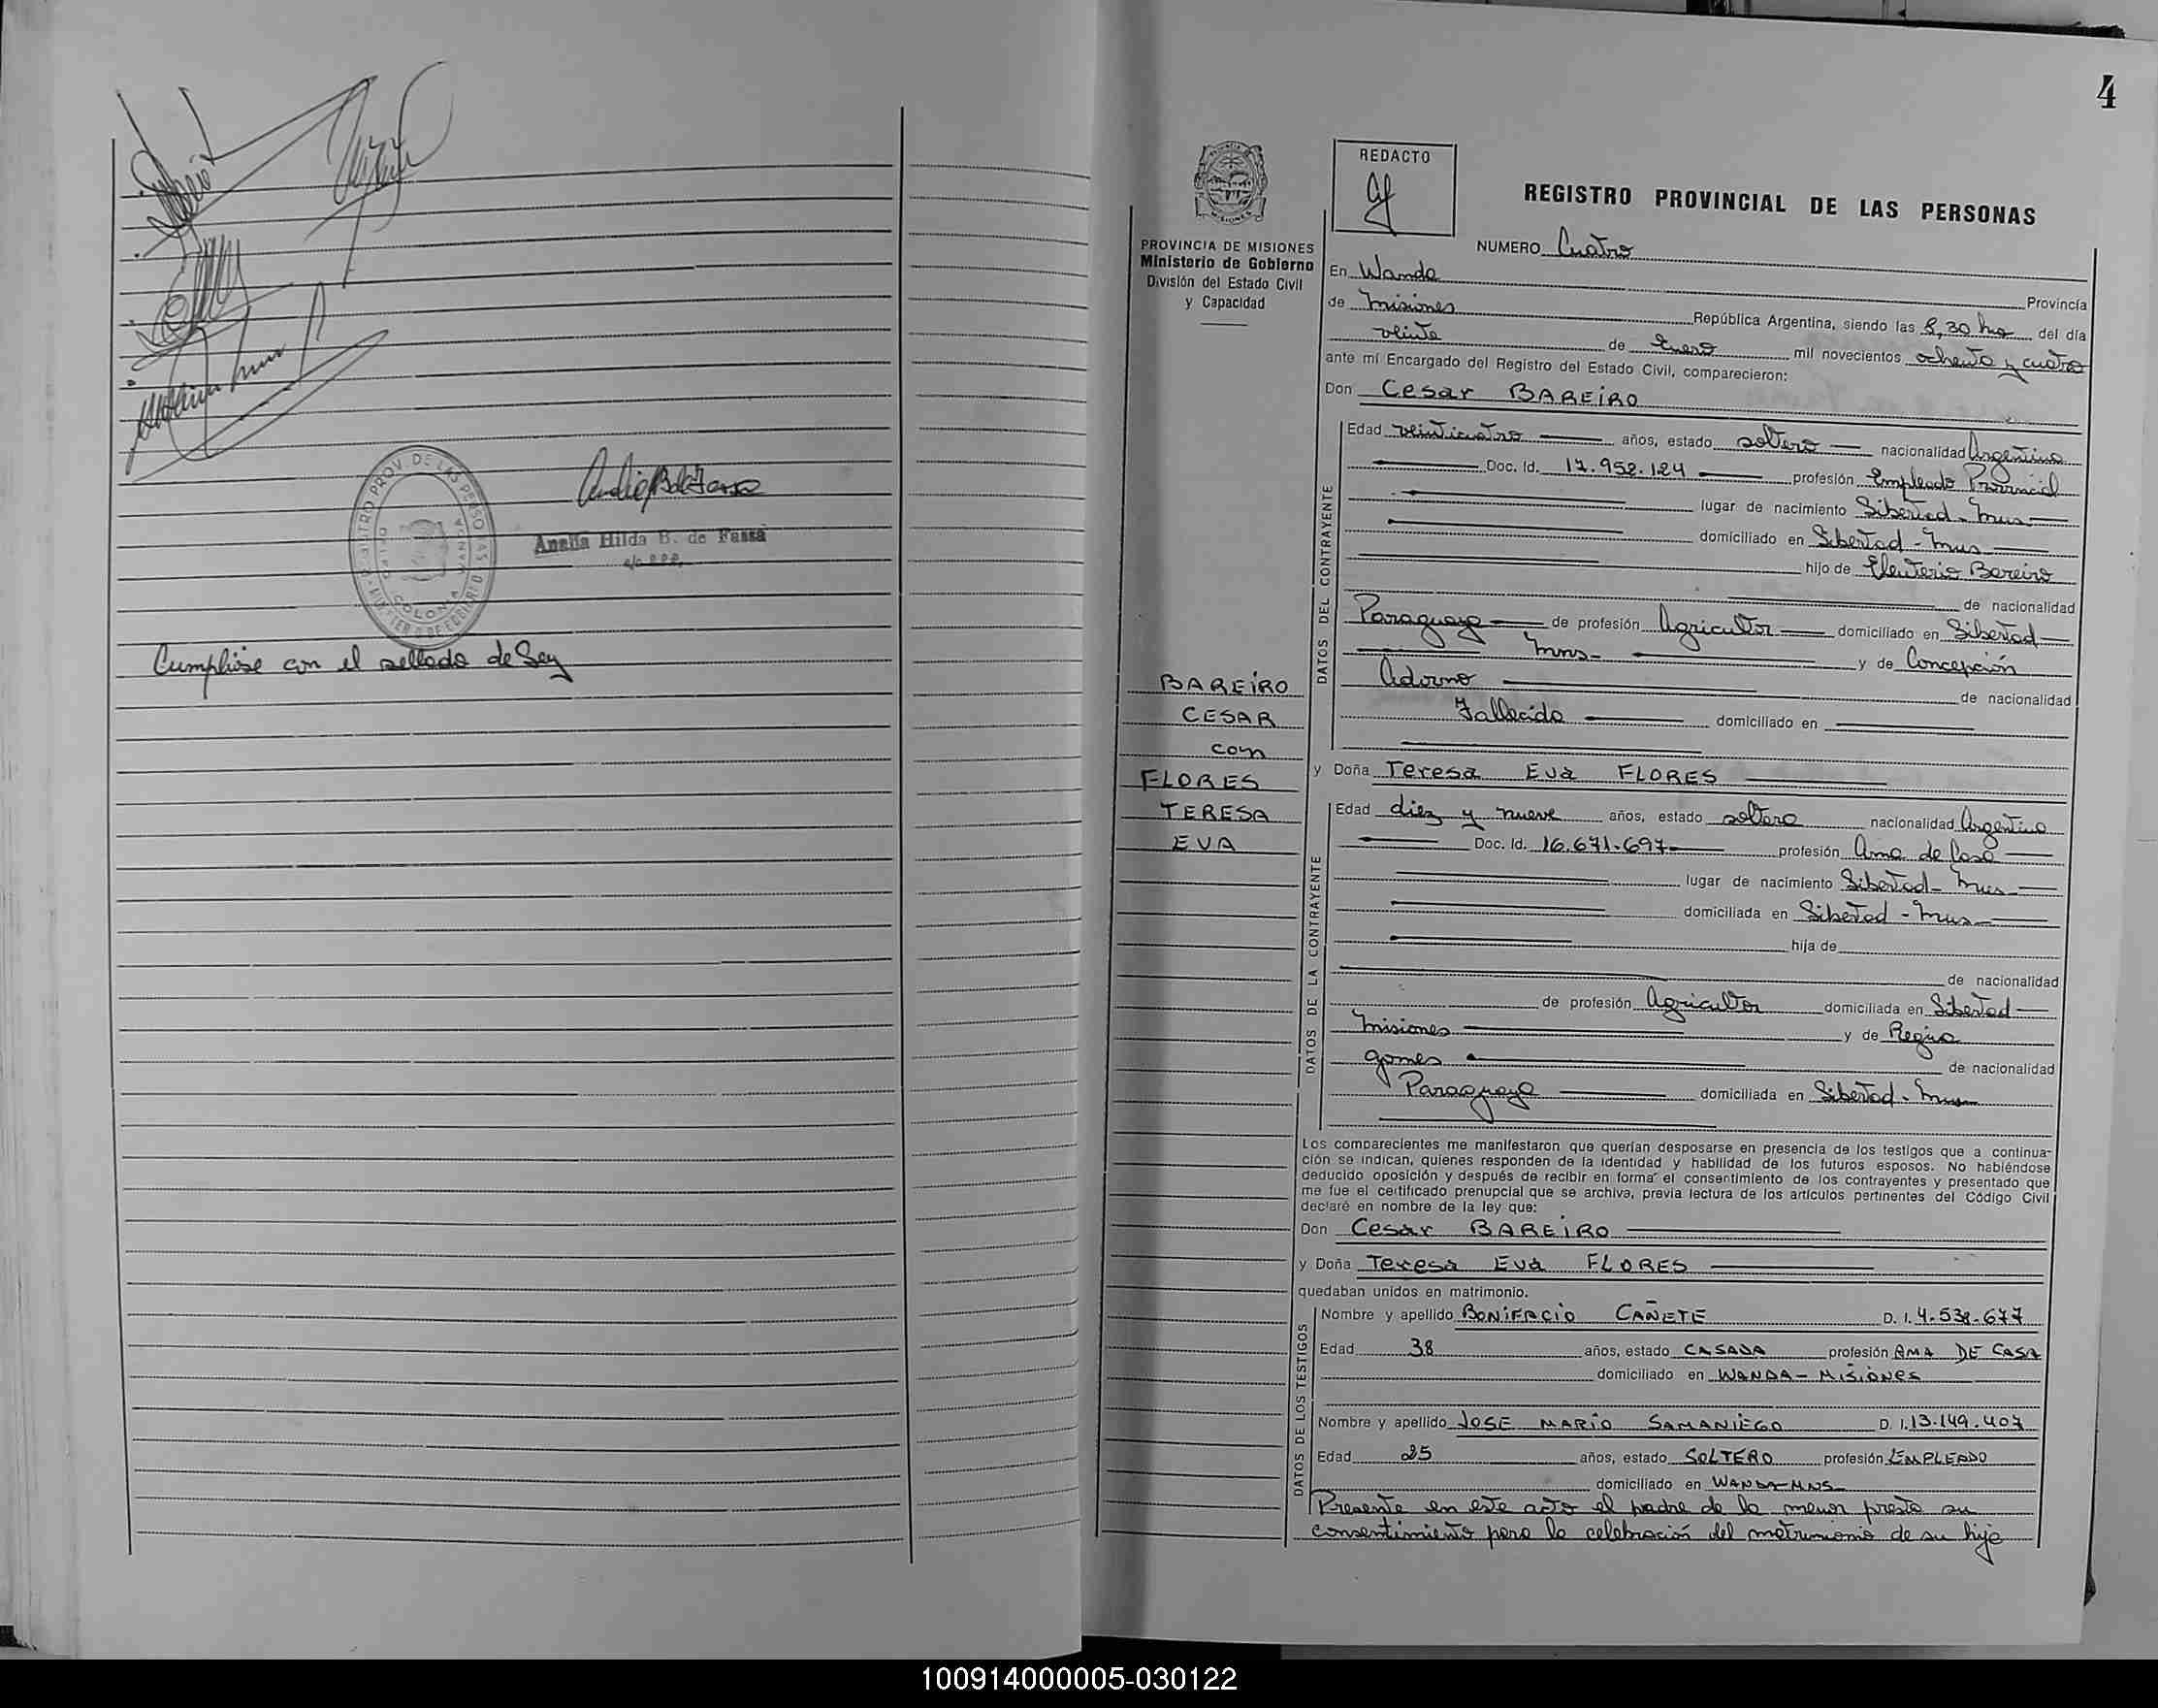 Analía Hilda B. de Fassa
Cumpliose con el sellado de Ley
4
REDACTO
REGISTRO PROVINCIAL DE LAS PERSONAS
PROVINCIA DE MISIONES
Ministerio de Gobierno
División del Estado Civil
y Capacidad
NUMERO Cuatro
En Wanda Provincia
de Misiones República Argentina, siendo las 8,30 hs del día
veinte de Enero mil novecientos ochenta y cuatro
ante mí Encargado del Registro del Estado Civil, comparecieron:
Don Cesar BAREIRO
DATOS DEL CONTRAYENTE
Edad veinticuatro años, estado soltero nacionalidad Argentina
Doc. Id. 17.952.124 profesión Empleado Provincial
lugar de nacimiento Libertad - Mnes
domiciliado en Libertad - Mnes
hijo de Eleuterio Bareiro
de nacionalidad
Paraguaya de profesión Agricultor domiciliado en Libertad
Mnes - y de Concepción
Adorno de nacionalidad
Fallecida domiciliado en
BAREIRO
CESAR
con
FLORES
TERESA
EVA
y Doña Teresa Eva FLORES
DATOS DE LA CONTRAYENTE
Edad diez y nueve años, estado soltera nacionalidad Argentina
Doc. Id. 16.671.697 profesión Ama de Casa
lugar de nacimiento Libertad - Mnes
domiciliada en Libertad - Mnes
hija de
de nacionalidad
de profesión Agricultor domiciliada en Libertad
Misiones y de Regina
Gomes de nacionalidad
Paraguaya domiciliada en Libertad - Mnes
Los comparecientes me manifestaron que querían desposarse en presencia de los testigos que a continua-
ción se indican, quienes responden de la identidad y habilidad de los futuros esposos. No habiéndose
deducido oposición y después de recibir en forma el consentimiento de los contrayentes y presentado que
me fue el certificado prenupcial que se archiva, previa lectura de los artículos pertinentes del Código Civil
declaré en nombre de la ley que:
Don Cesar BAREIRO
y Doña Teresa Eva FLORES
quedaban unidos en matrimonio.
DATOS DE LOS TESTIGOS
Nombre y apellido BONIFACIO CAÑETE D. I. 4.538.677
Edad 38 años, estado CASADA profesión AMA DE CASA
domiciliado en WANDA - MISIONES
Nombre y apellido JOSE MARIO SAMANIEGO D. I. 13.149.407
Edad 25 años, estado SOLTERO profesión EMPLEADO
domiciliado en WANDA-MNS
Presente en este acto el padre de la menor presta su
consentimiento para la celebración del matrimonio de su hija
100914000005-030122